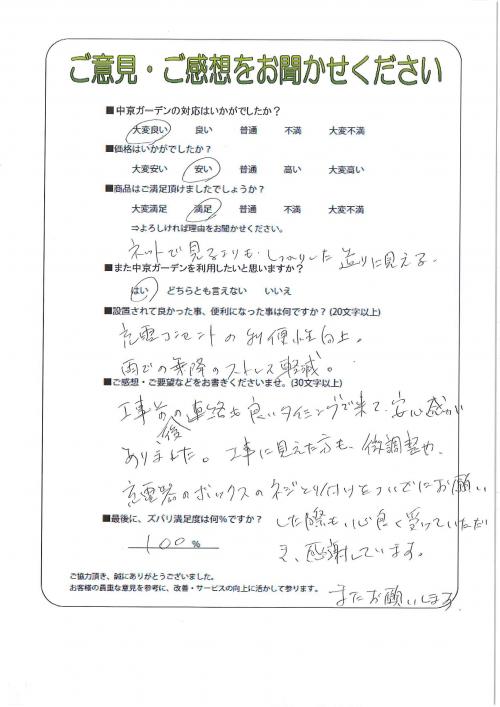 ご意見・ご感想をお聞かせください
■中京ガーデンの対応はいかがでしたか？
大変良い 良い 普通 不満 大変不満
■価格はいかがでしたか？
大変安い 安い 普通 高い 大変高い
■商品はご満足頂けましたでしょうか？
大変満足 満足 普通 不満 大変不満
⇒よろしければ理由をお聞かせください。
ネットで見るよりも、しっかりした造りに見える。
■また中京ガーデンを利用したいと思いますか？
はい どちらとも言えない いいえ
■設置されて良かった事、便利になった事は何ですか？(20文字以上)
充電コンセントの利便性向上。
雨での乗降のストレス軽減。
■ご感想・ご要望などをお書きくださいませ。(30文字以上)
工事前後の連絡も良いタイミングで来て、安心感が
ありました。工事に見えた方も、微調整や、
充電器のボックスのネジとり付けをついでにお願い
した際も心良く受けていただ
き、感謝しています。
またお願いします
■最後に、ズバリ満足度は何％ですか？
100 %
ご協力頂き、誠にありがとうございました。
お客様の貴重な意見を参考に、改善・サービスの向上に活かして参ります。